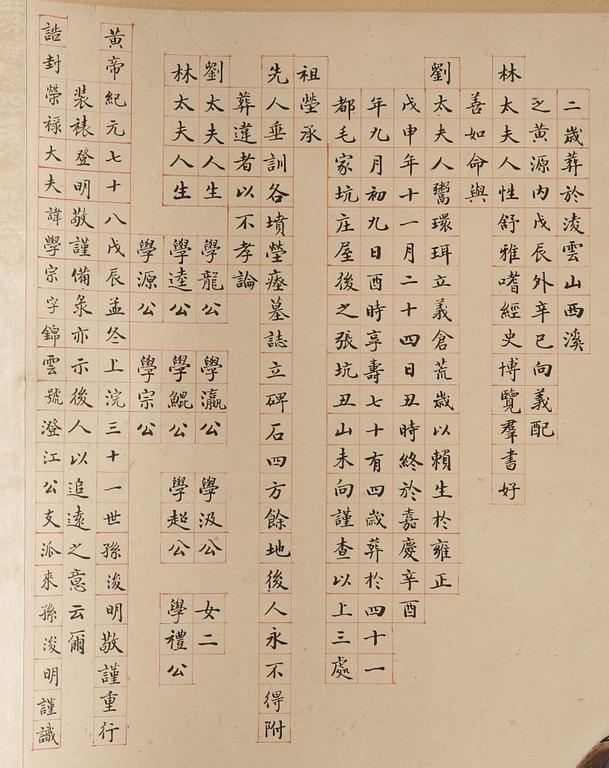 二歲葬於淩雲山西溪
之黃源內戊辰外辛巳向義配
林太夫人性舒雅嗜經史博覽羣書好
善如命與
劉太夫人鬻環珥立義倉荒歲以賴生於雍正
戊申年十一月二十四日丑時終於嘉慶辛酉
年九月初九日酉時享壽七十有四歲葬於四十一
都毛家坑庄屋後之張坑丑山未向謹查以上三處
祖塋承
先人垂訓各墳塋瘞墓誌立碑石四方餘地後人永不得附
葬違者以不孝論
劉太夫人生 學龍公 學瀛公 學汲公 女二
林太夫人生 學逵公 學鯤公 學超公 學禮公
學源公 學宗公
黃帝紀元七十八戊辰孟冬上浣三十一世孫浚明敬謹重行
裝裱登明敬謹備彔亦示後人以追遠之意云爾
誥封榮祿大夫諱學宗字錦雲號澄江公支派來孫浚明謹識